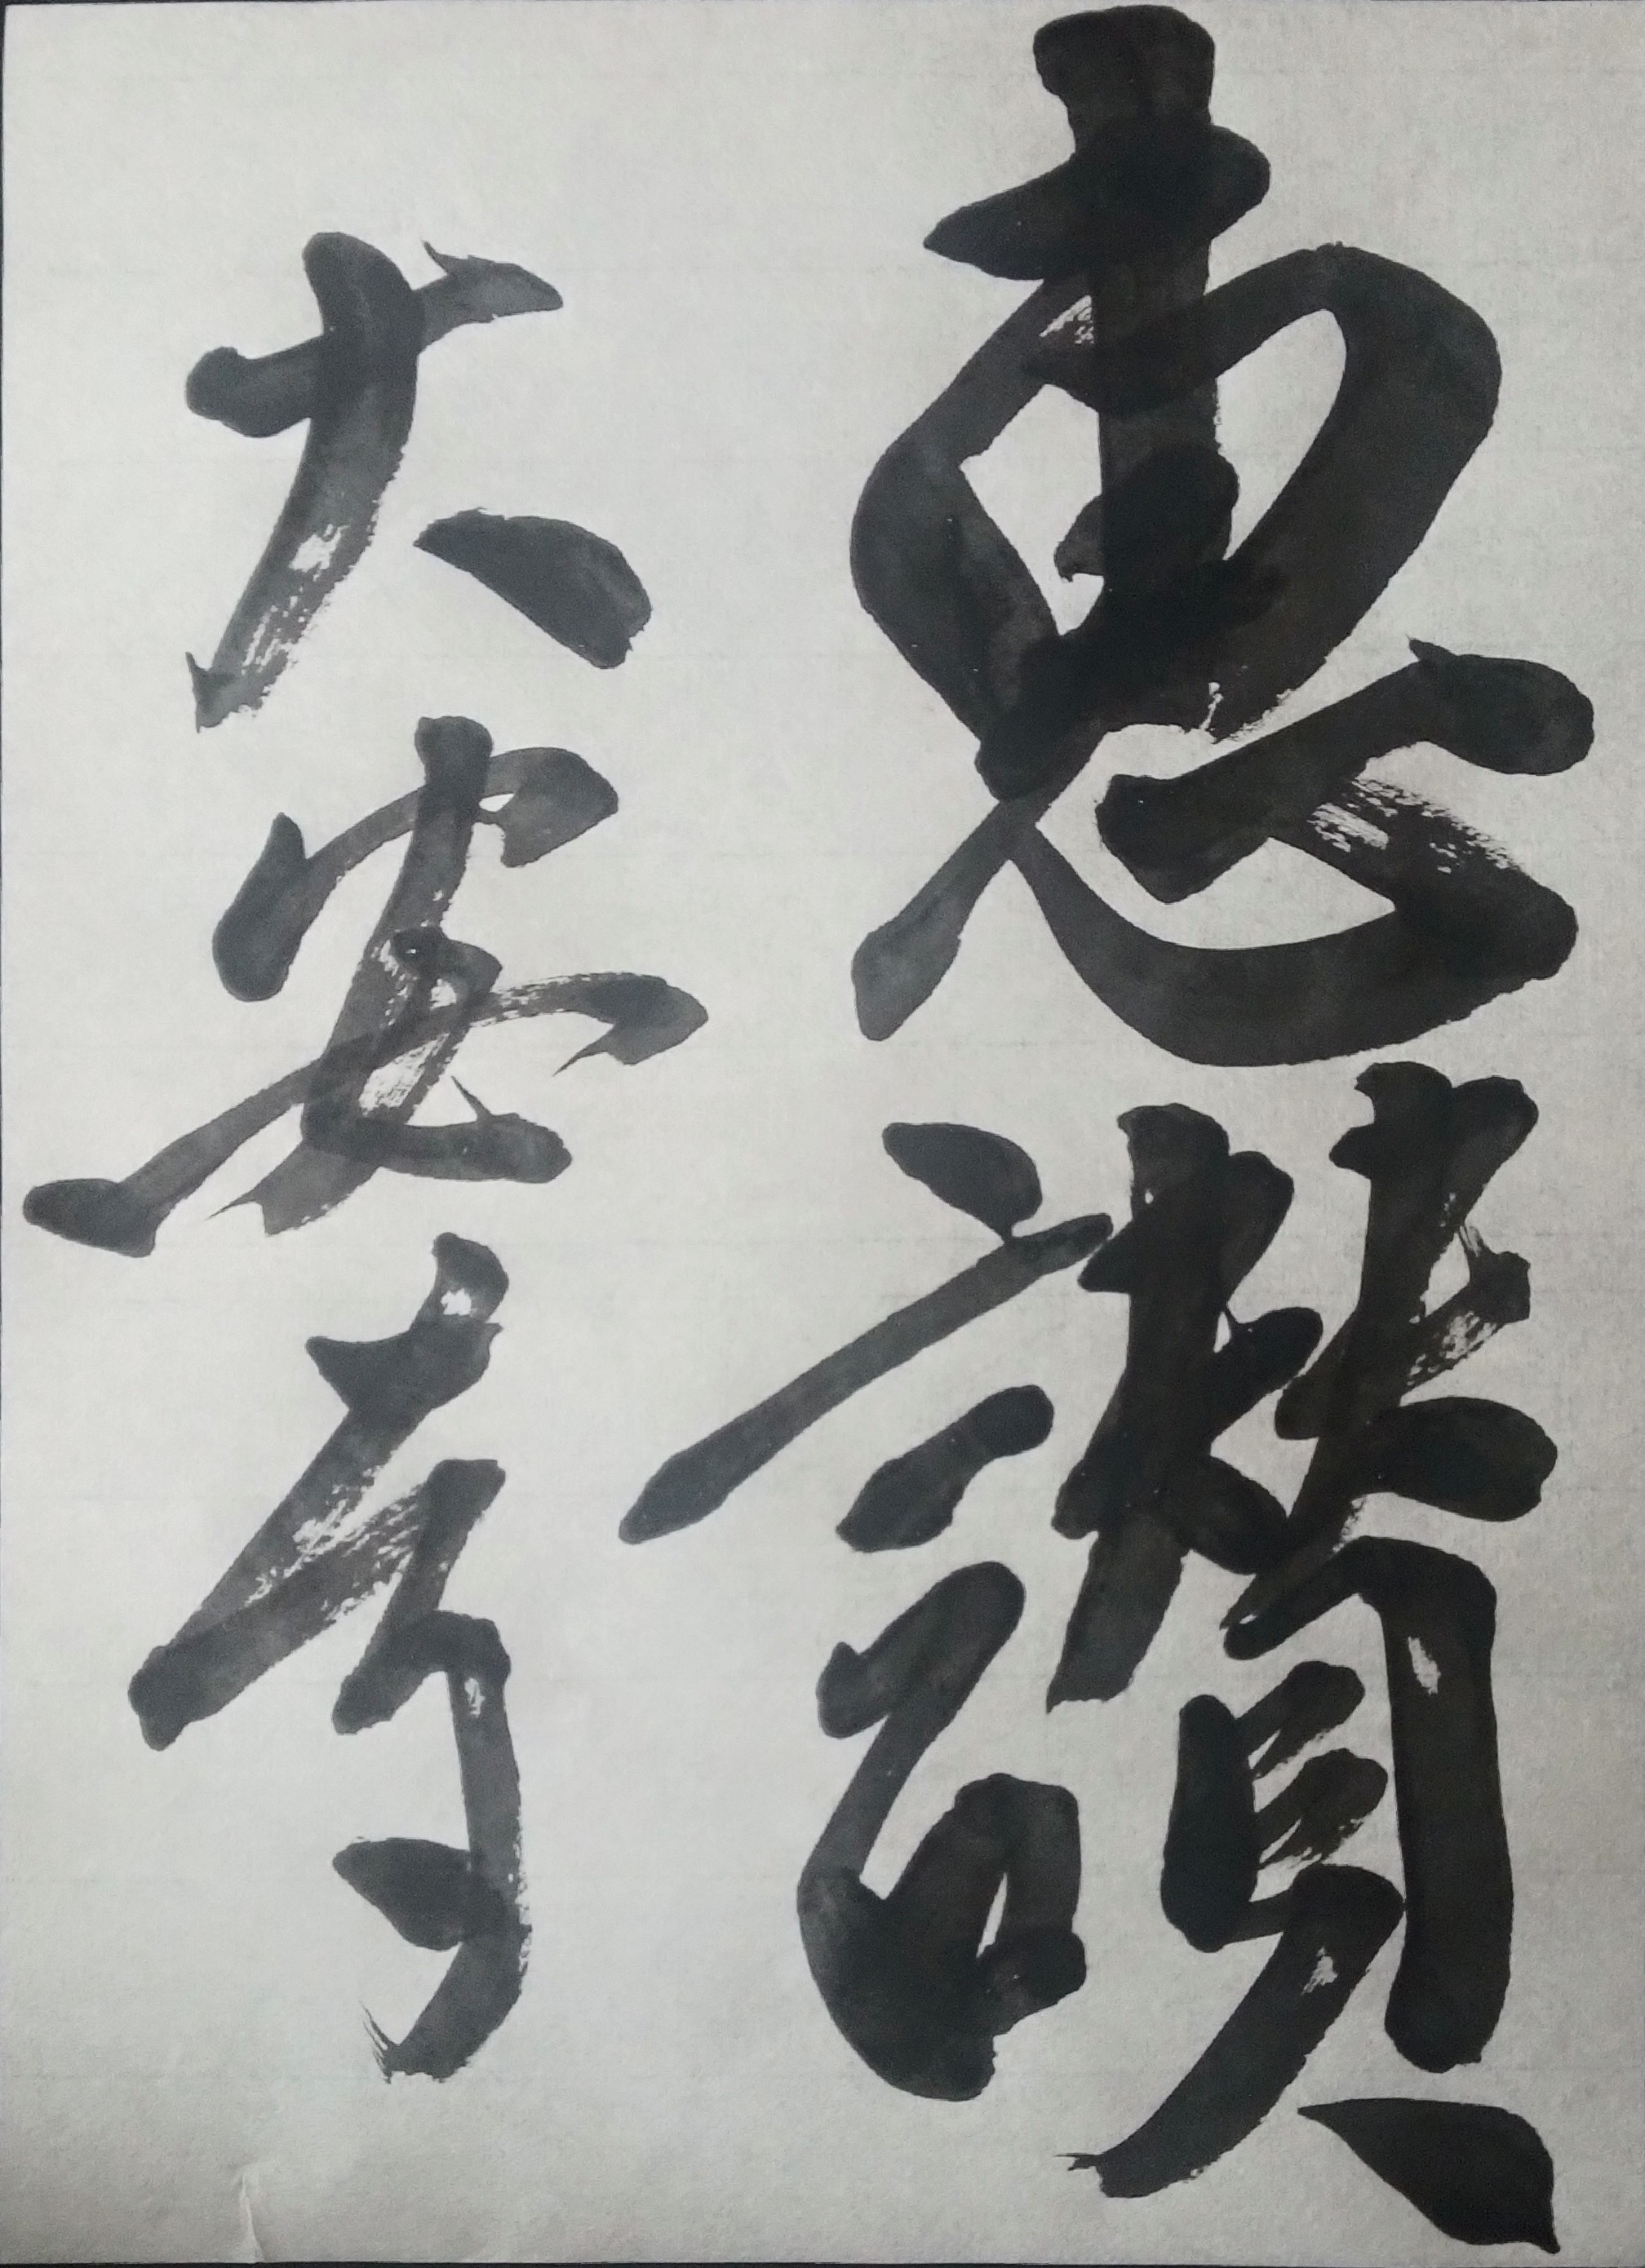 恵讃
大安寺